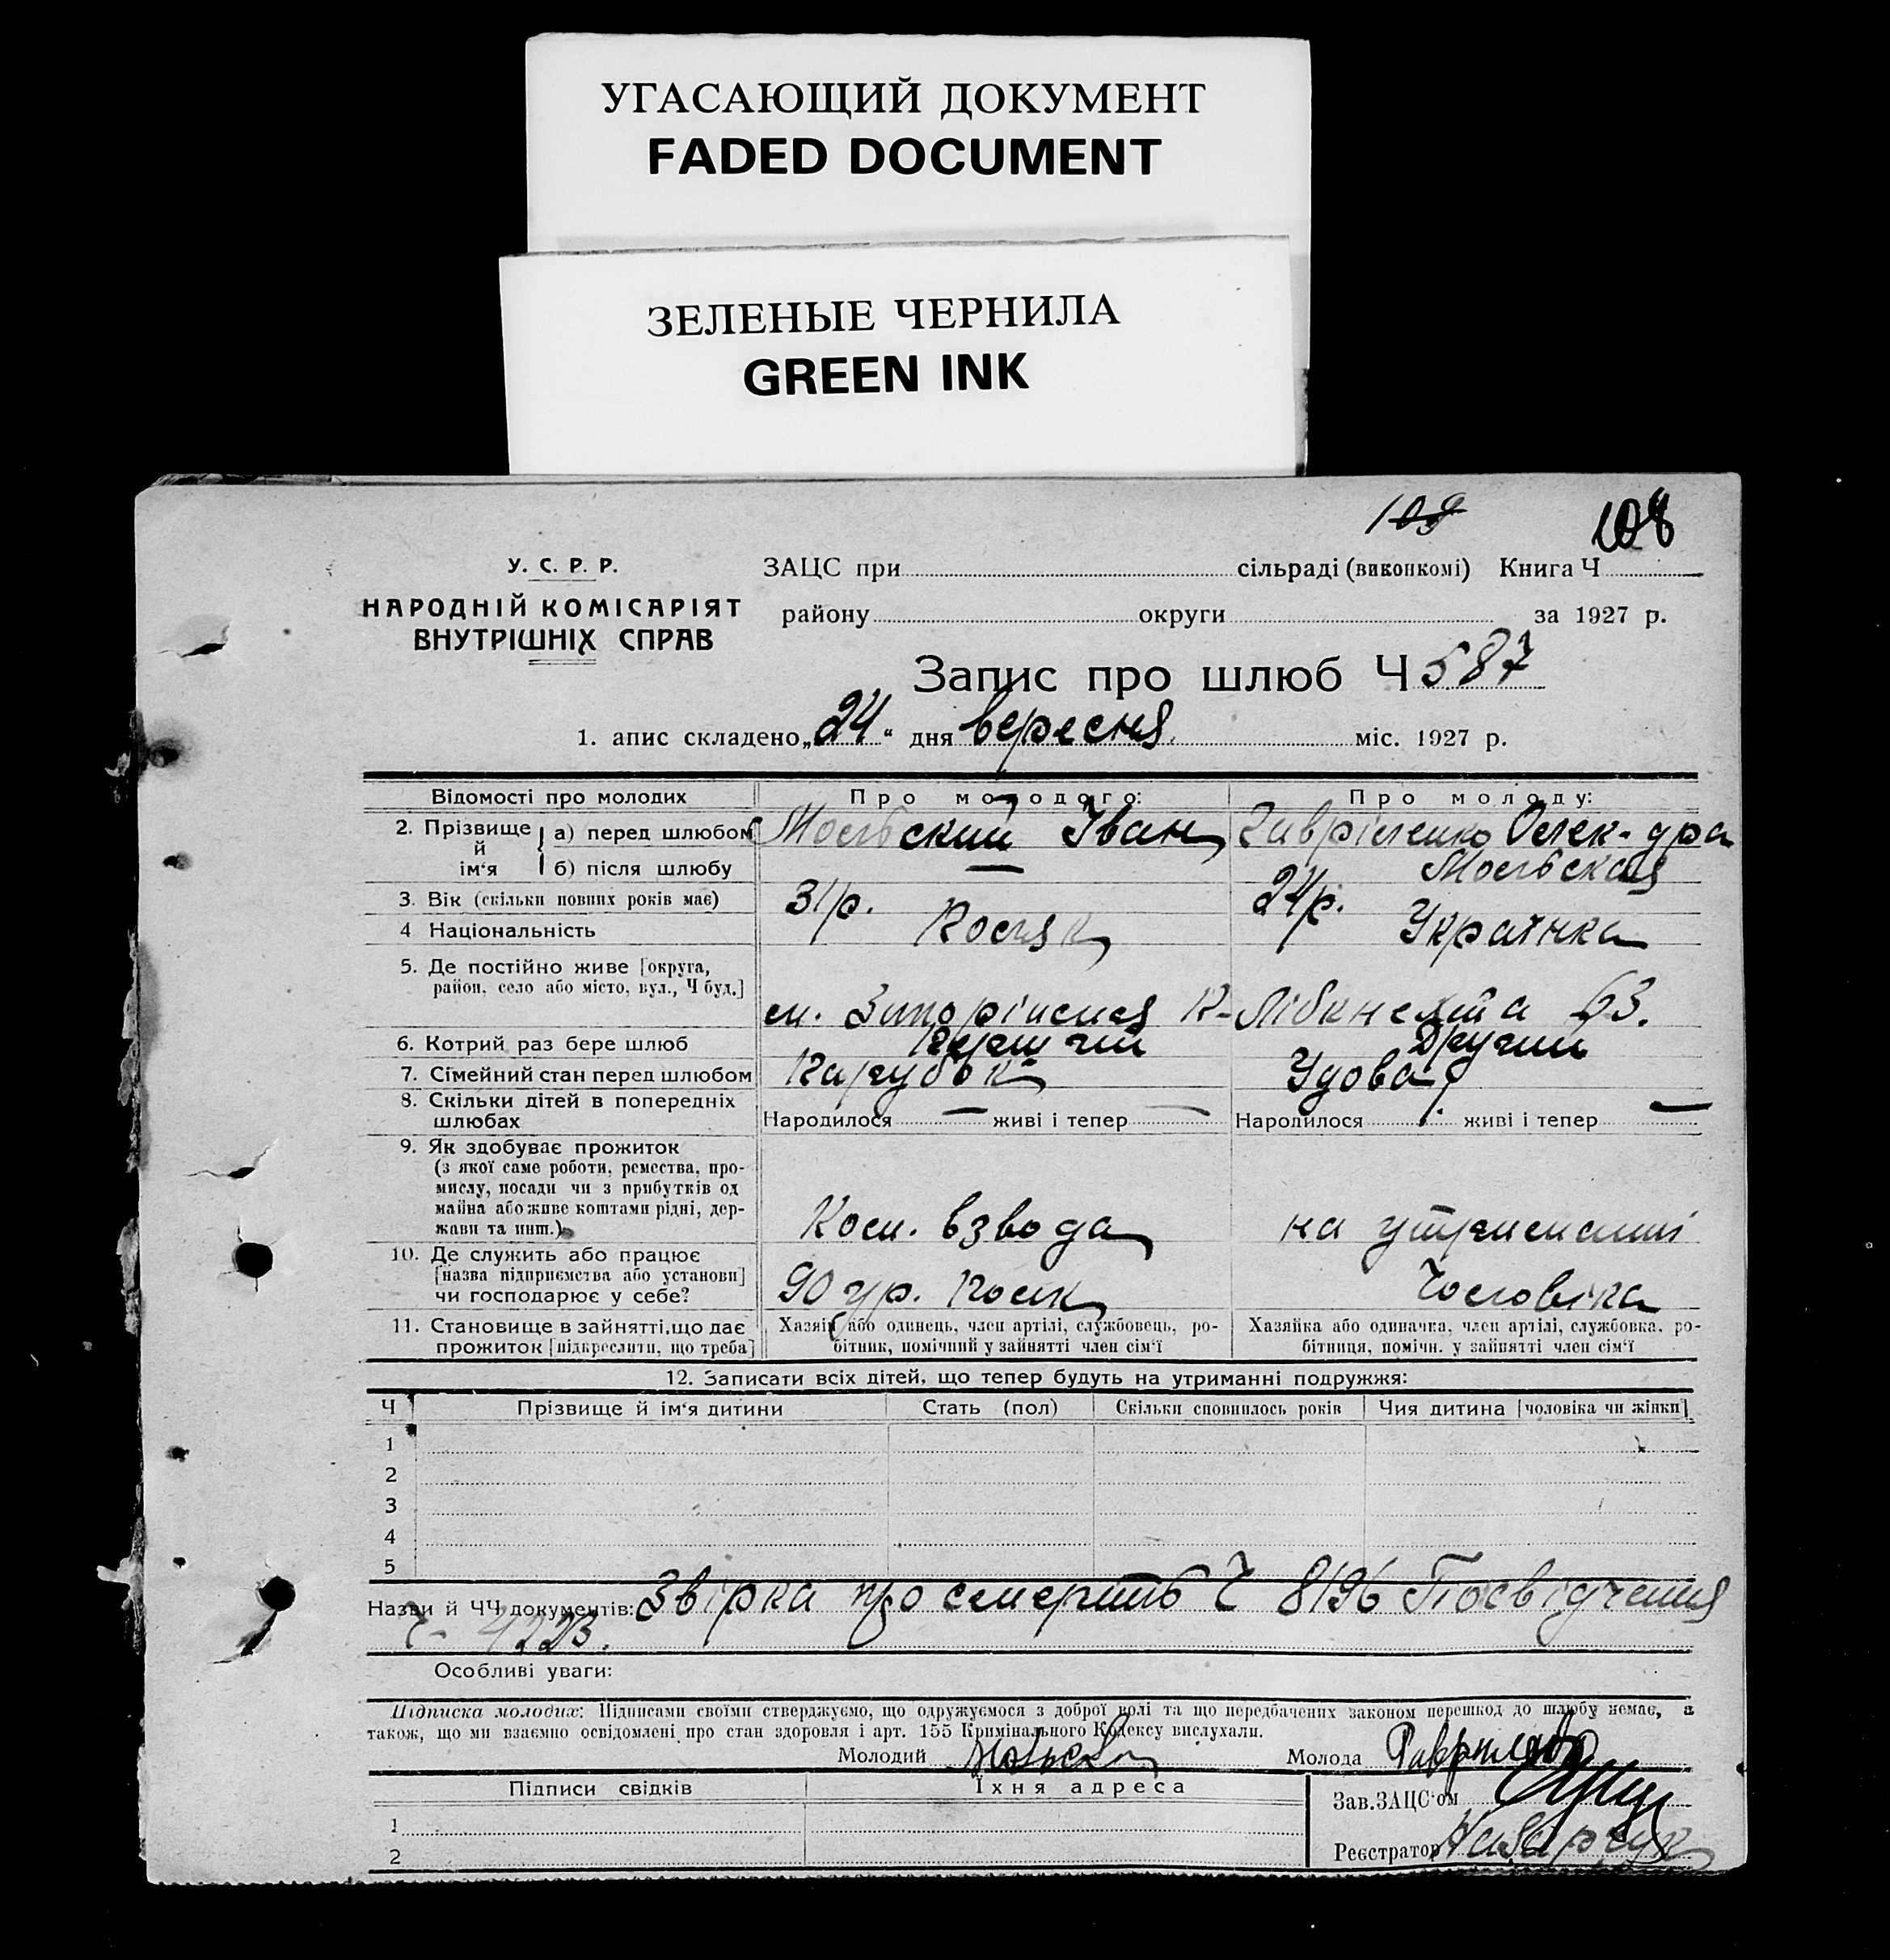 УГАСАЮЩИЙ ДОКУМЕНТ
FADED DOCUMENT
ЗЕЛЕНЫЕ ЧЕРНИЛА
GREEN INK
109 108
У. С. Р. Р.
НАРОДНІЙ КОМІСАРІЯТ
ВНУТРІШНІХ СПРАВ
ЗАЦС при сільраді (виконкомі) Книга Ч
району округи за 1927 р.
Запис про шлюб Ч 587
1. апис складено „24“ дня вересня міс. 1927 р.
Відомості про молодих Про молодого: Про молоду:
2. Прізвище й ім‘я
а) перед шлюбом Иван Гавріленко Олек-дра
б) після шлюбу —
3. Вік (скільки повних років має) 31 р. 24 р.
4 Національність Украінка
5. Де постійно живе [округа,
район, село або місто, вул., Ч буд.]
м. К-Лібкнехта 63.
6. Котрий раз бере шлюб Перший Другий
7. Сімейний стан перед шлюбом Парубок Удова
8. Скільки дітей в попередніх
шлюбах Народилося — живі і тепер — Народилося живі і тепер —
9. Як здобуває прожиток
(з якої саме роботи, ремества, про-
мислу, посади чи з прибутків од
майна або живе коштами рідні, дер-
жави та инш.) Ком. взвода на утриманні
10. Де служить або працює
[назва підприємства або установи]
чи господарює у себе? 90 полк чоловіка
11. Становище в зайнятті, що дає
прожиток [підкреслити, що треба]
Хазяїн або одинець, член артілі, службовець, ро-
бітник, помічний у зайнятті член сім‘ї
Хазяйка або одиначка, член артілі, службовка, ро-
бітниця, помічн. у зайнятті член сім‘ї
12. Записати всіх дітей, що тепер будуть на утриманні подружжя:
Ч Прізвище й ім‘я дитини Стать (пол) Скільки сповнилось років Чия дитина [чоловіка чи жінки]
1
2
3
4
5
Назви й ЧЧ документів: Звірка про смерть Ч 8196 Посвідчення
Ч 4223.
Особливі уваги:
Підписка молодих: Підписами своїми стверджуємо, що одружуємося з доброї волі та що передбачених законом перешкод до шлюбу немає, а
також, що ми взаємно освідомлені про стан здоровля і арт. 155 Кримінального Кодексу вислухали.
Молодий Молода
Підписи свідків Їхня адреса
Зав. ЗАЦС‘ом
1
Реєстратор Назарчук
2